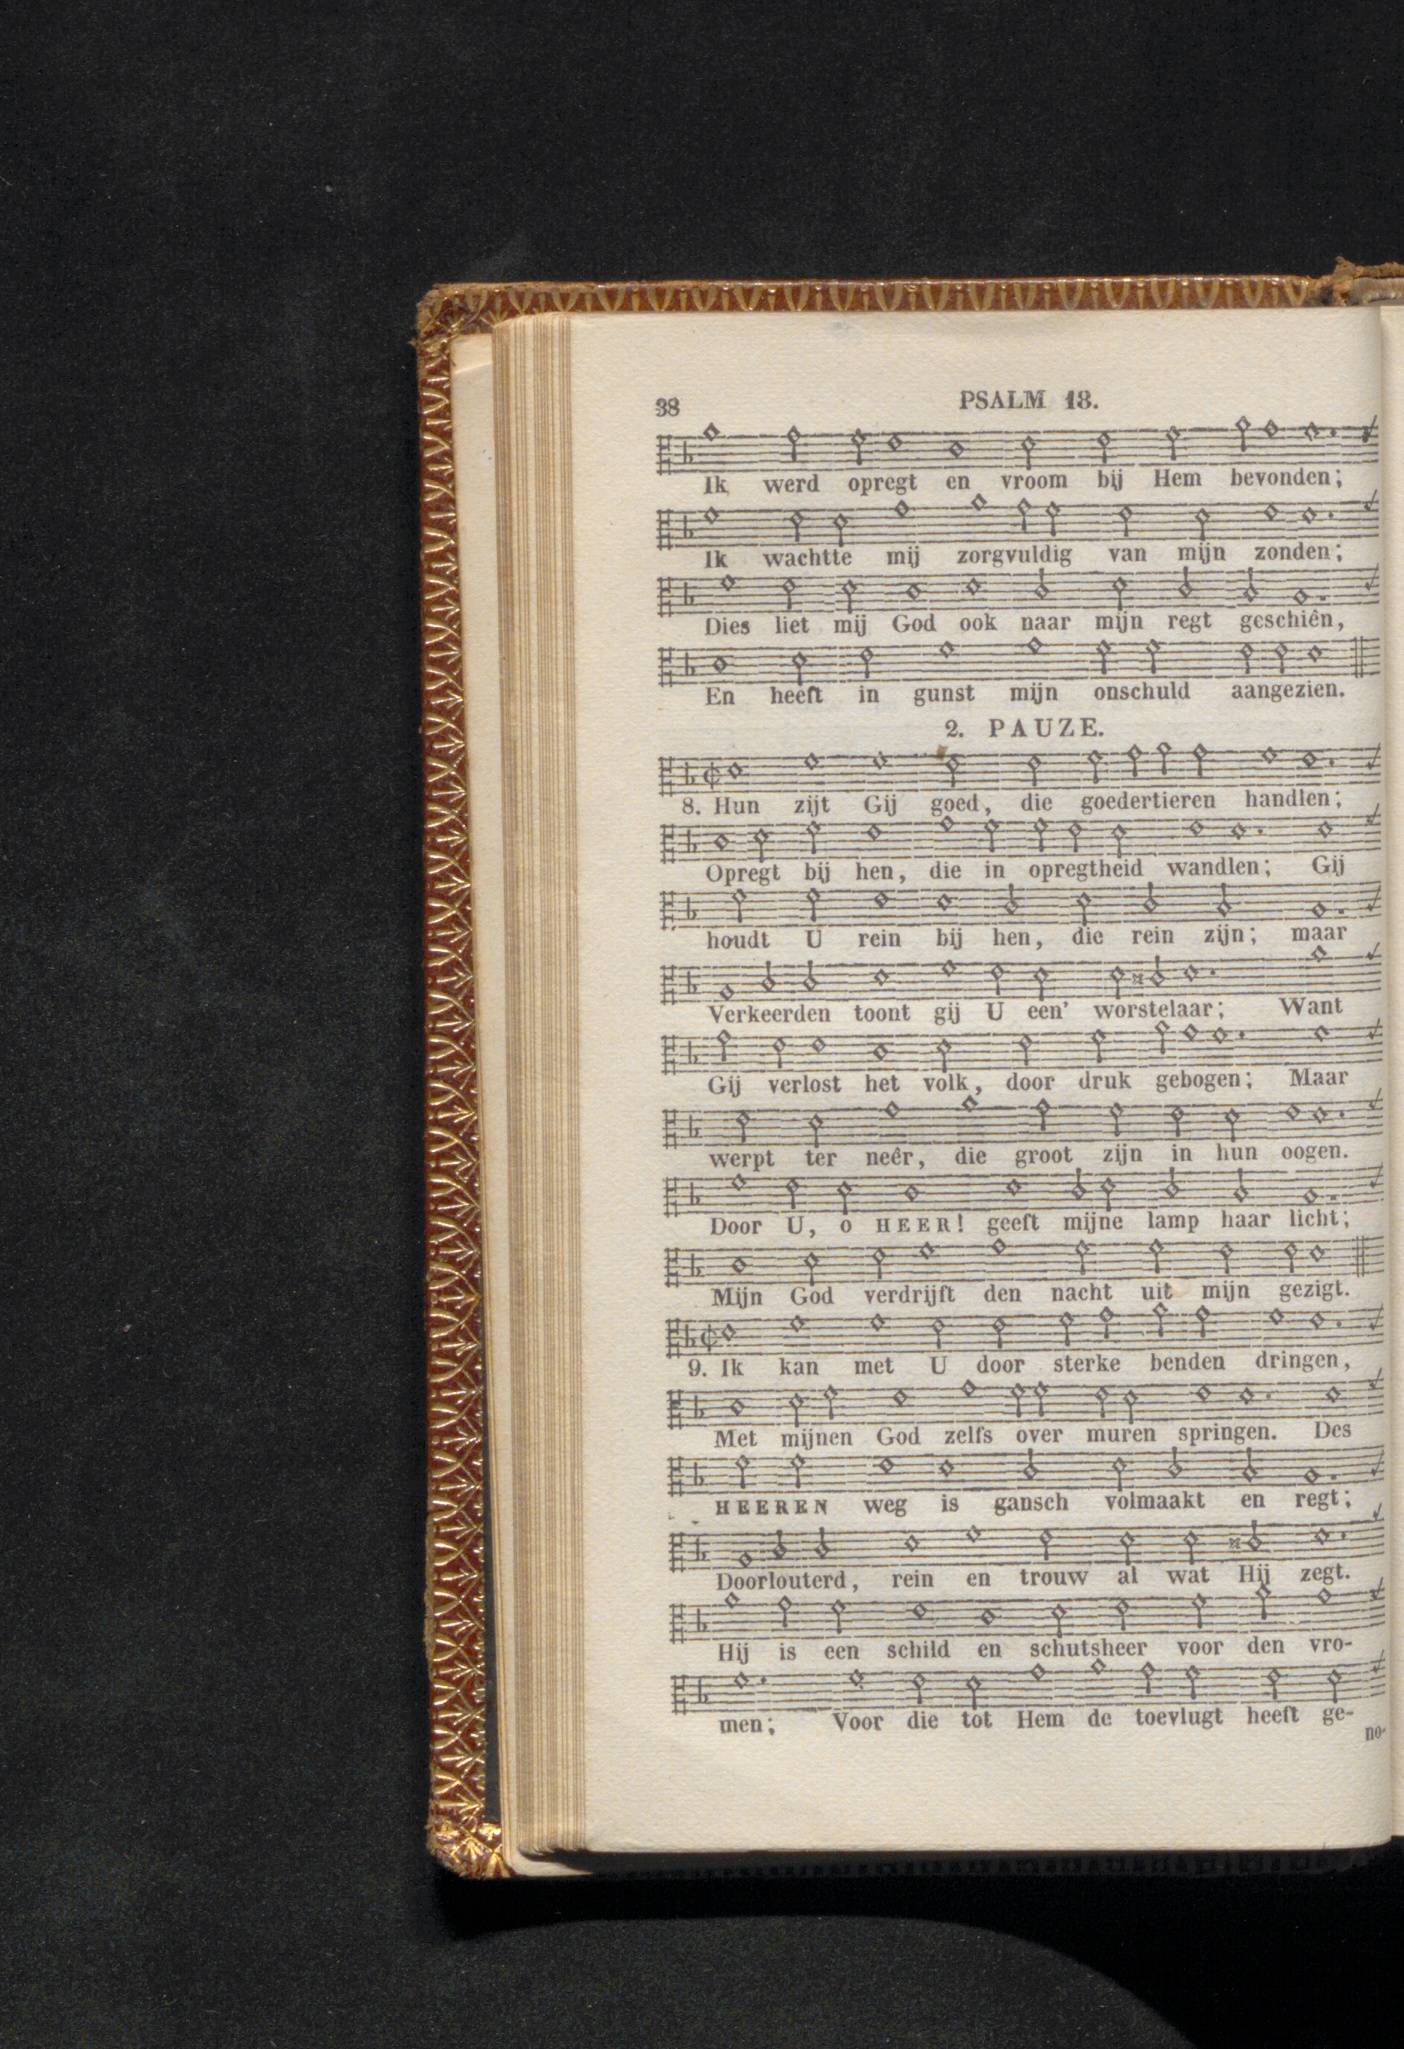 38 PSALM 18.
Ik werd opregt en vroom bij Hem bevonden;
Ik wachtte mij zorgvuldig van mijn zonden;
Dies liet mij God ook naar mijn regt geschiên,
En heeft in gunst mijn onschuld aangezien.
2. PAUZE.
8. Hun zijt Gij goed, die goedertieren handlen;
Opregt bij hen, die in opregtheid wandlen; Gij
houdt U rein bij hen, die rein zijn; maar
Verkeerden toont gij U een' worstelaar; Want
Gij verlost het volk, door druk gebogen; Maar
werpt ter neêr, die groot zijn in hun oogen.
Door U, o HEER! geeft mijne lamp haar licht;
Mijn God verdrijft den nacht uit mijn gezigt.
9. Ik kan met U door sterke benden dringen,
Met mijnen God zelfs over muren springen. Des
HEEREN weg is gansch volmaakt en regt;
Doorlouterd, rein en trouw al wat Hij zegt.
Hij is een schild en schutsheer voor den vro-
men; Voor die tot Hem de toevlugt heeft ge-
no-